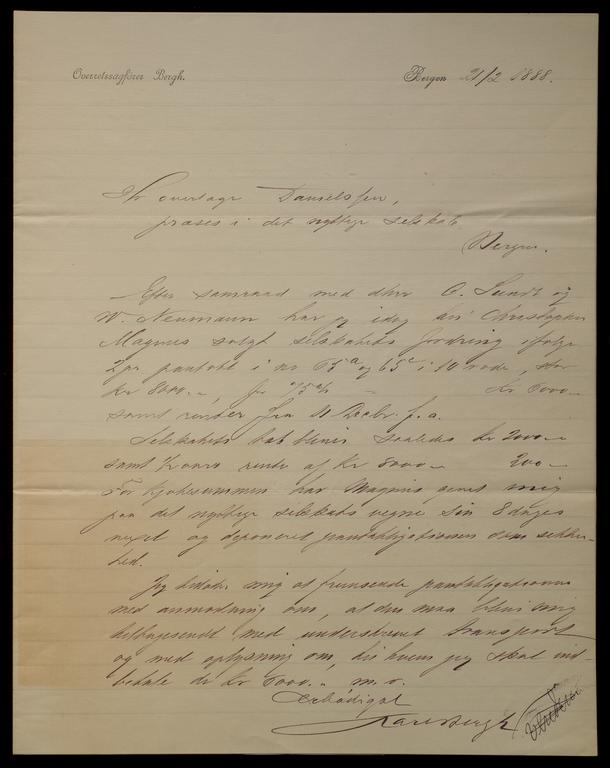 Overretssagfører Bergh.
Bergen 21/2 1888.
Hr overlæge Danielssen,
præses i det nyttige selskab
Bergen.
Efter samraad med dhrr O. Sundt og
W. Neumann har jeg idag til Christopher
Magnus solgt selskabets fordring ifølge
2 pr. pantobl. i no 65a og 65c i 10 rode, stor
kr 8000.-, for 75% - kr 6000.-
samt renter fra 11 Decbr. f. a.
Selskabets tab bliver saaledes kr 2000.-
samt aars rente af kr 8000.- 200.-
For kjøbesummen har Magnus givet mig
paa det nyttige selskabs vegne sin 8 dages
vexel og deponeret pantobligationen som sikker-
hed.
Jeg tillader mig at fremsende pantobligationen
med anmodning om, at den maa blive mig
tilbagesendt med underskrevet transport
og med oplysning om, til hvem jeg skal ind-
betale de kr 6000.- m. v.
Ærbødigst
Karl Bergh